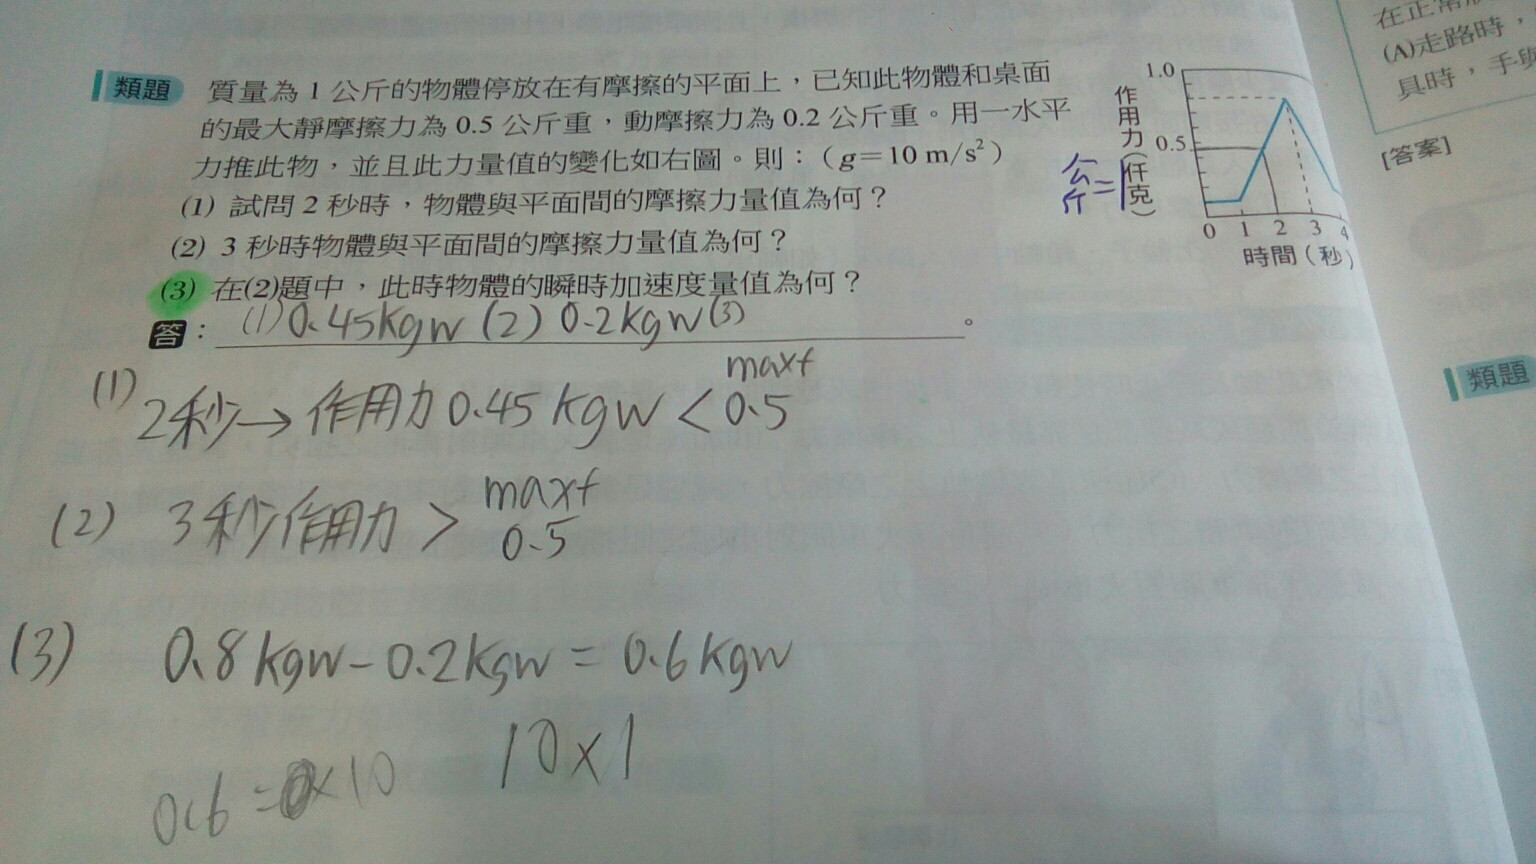 類題 質量為 1 公斤的物體停放在有摩擦的平面上，已知此物體和桌面
的最大靜摩擦力為 0.5 公斤重，動摩擦力為 0.2 公斤重。用一水平
力推此物，並且此力量值的變化如右圖。則：（g＝10 m/s²）
(1) 試問 2 秒時，物體與平面間的摩擦力量值為何？
(2) 3 秒時物體與平面間的摩擦力量值為何？
(3) 在(2)題中，此時物體的瞬時加速度量值為何？
答：(1)0.45kgw (2) 0.2kgw(3) 。
作用力（仟克）
公斤=
1.0
0.5
0 1 2 3 4
時間（秒）
(1) 2秒→作用力0.45 kgw < maxf 0.5
(2) 3秒作用力 > maxf 0.5
(3) 0.8kgw-0.2kgw=0.6kgw
10×1
(A)走路時，
具時，手與
[答案]
類題